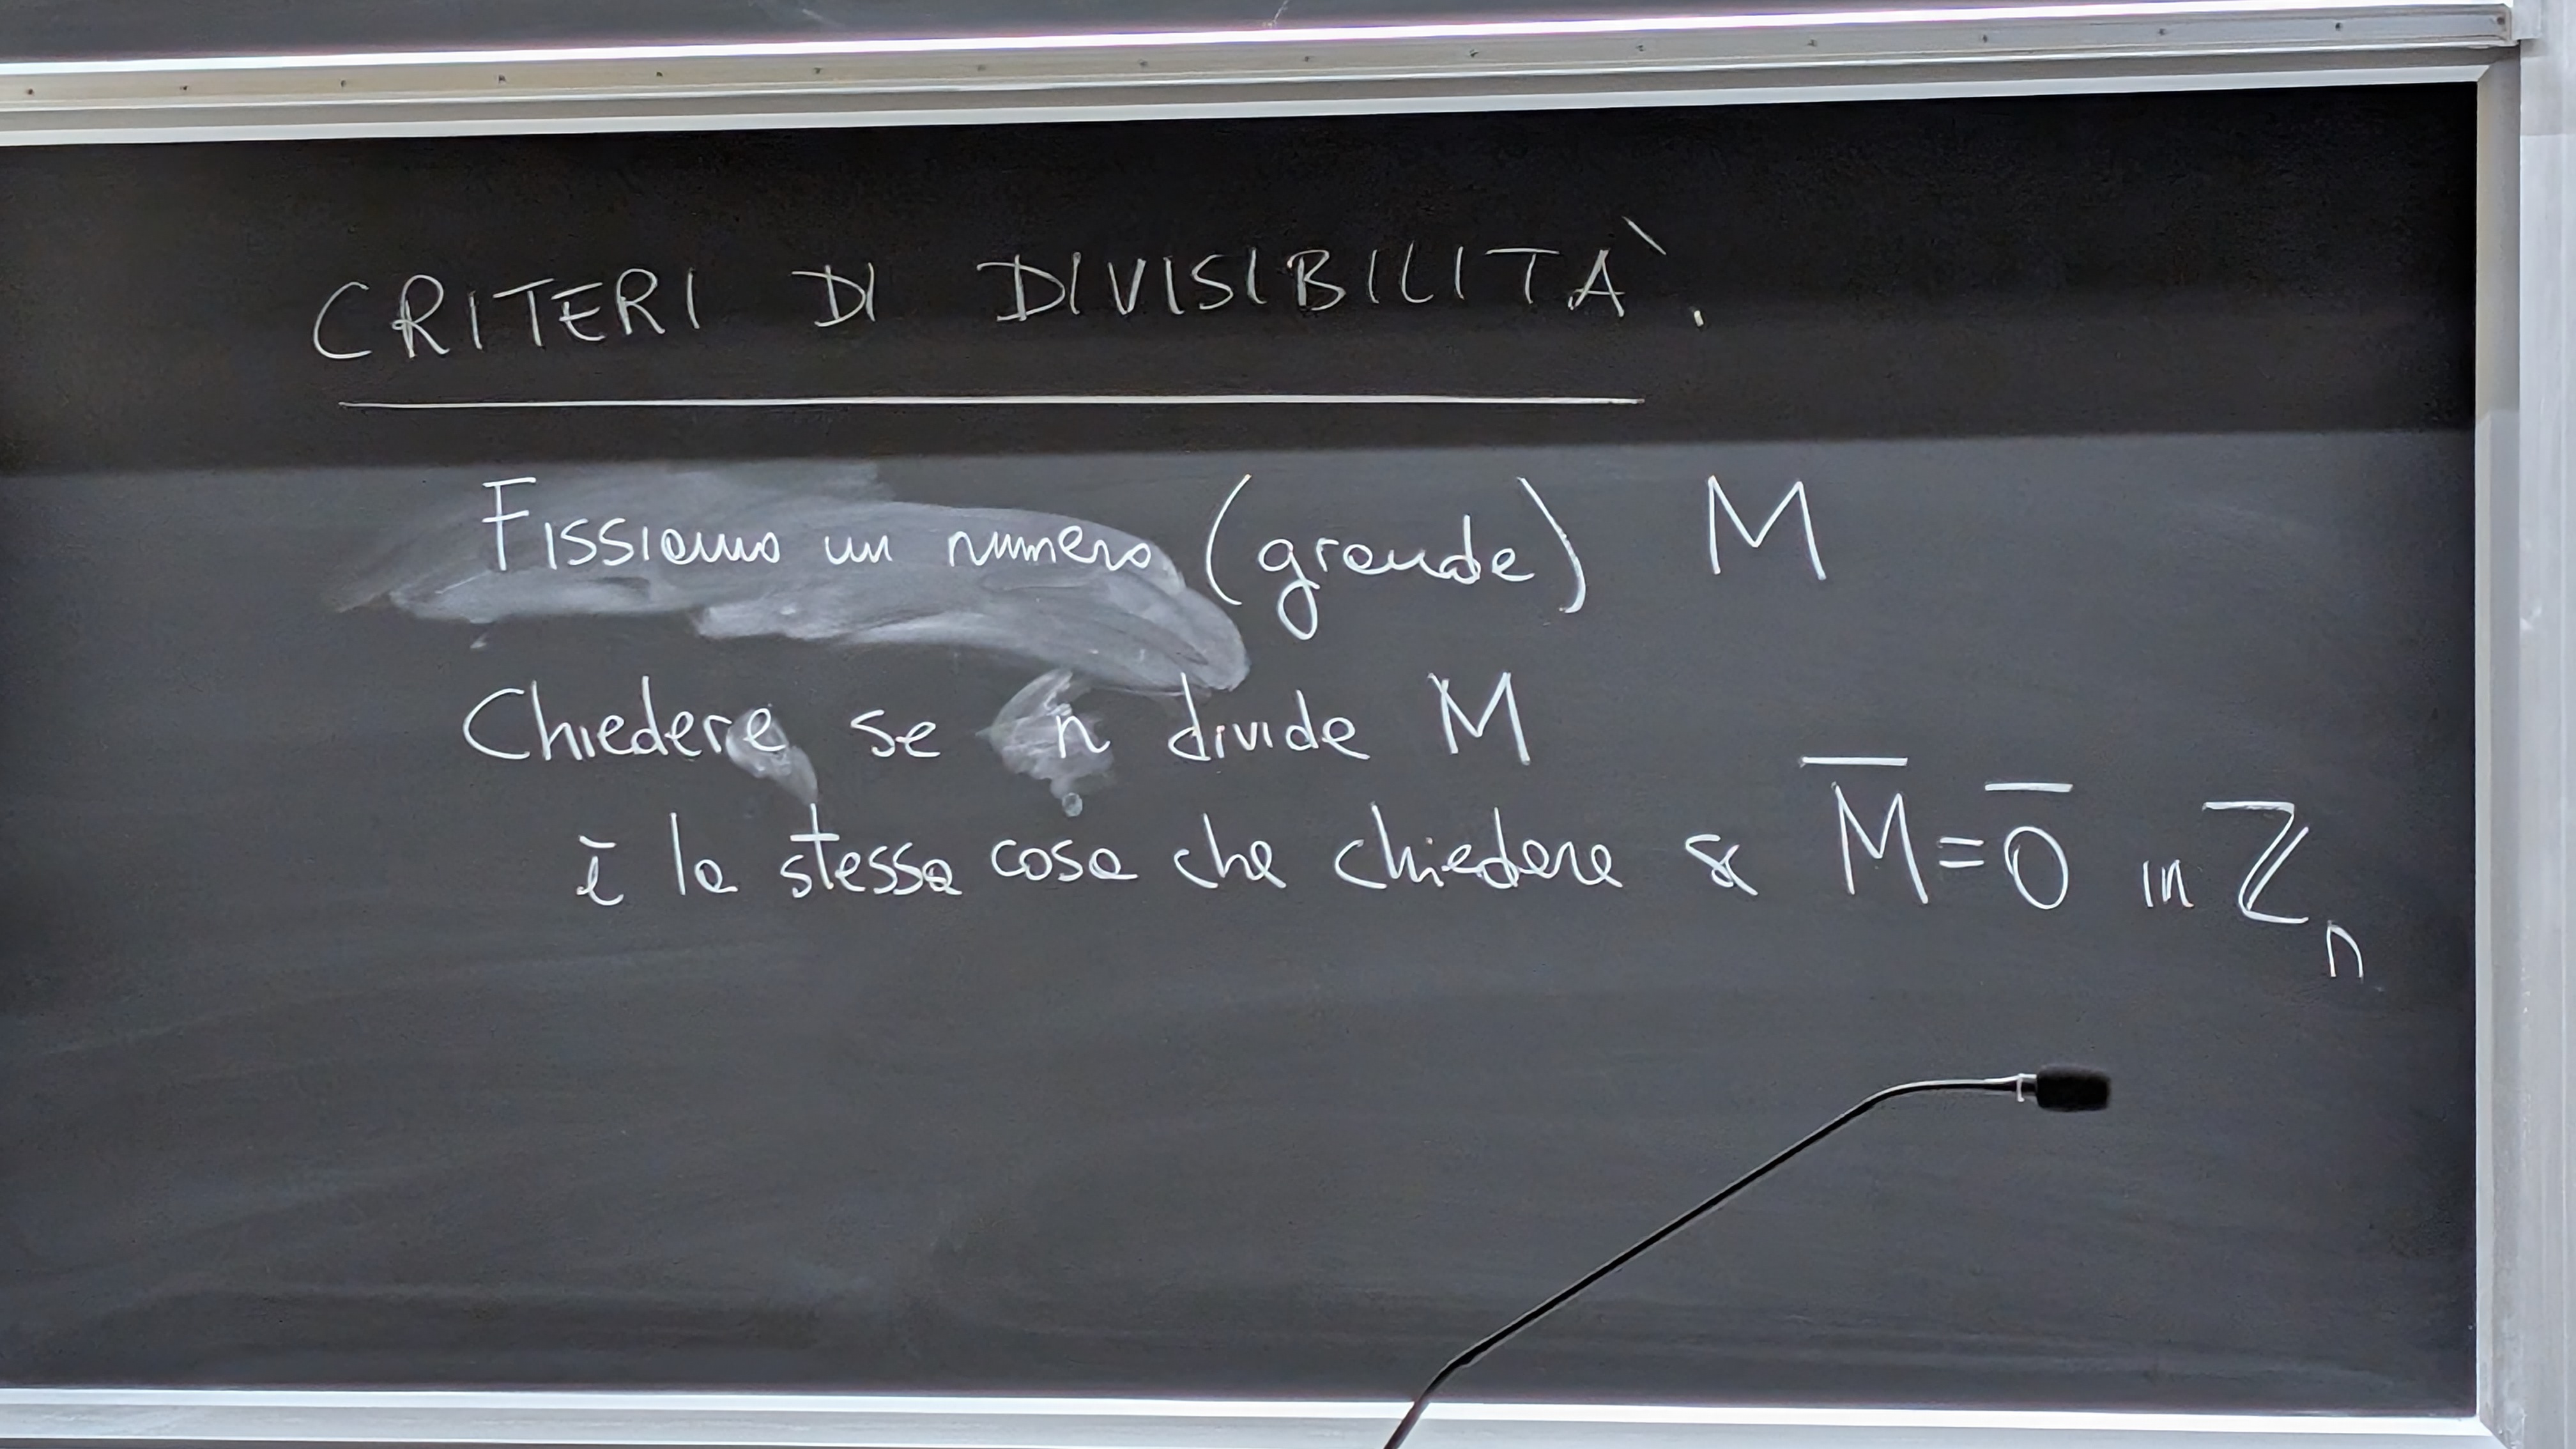 CRITERI DI DIVISIBILITÀ.
Fissiamo un numero (grande) M
Chiedere se n divide M
è la stessa cosa che chiedere se M̅ = 0̅ in ℤₙ